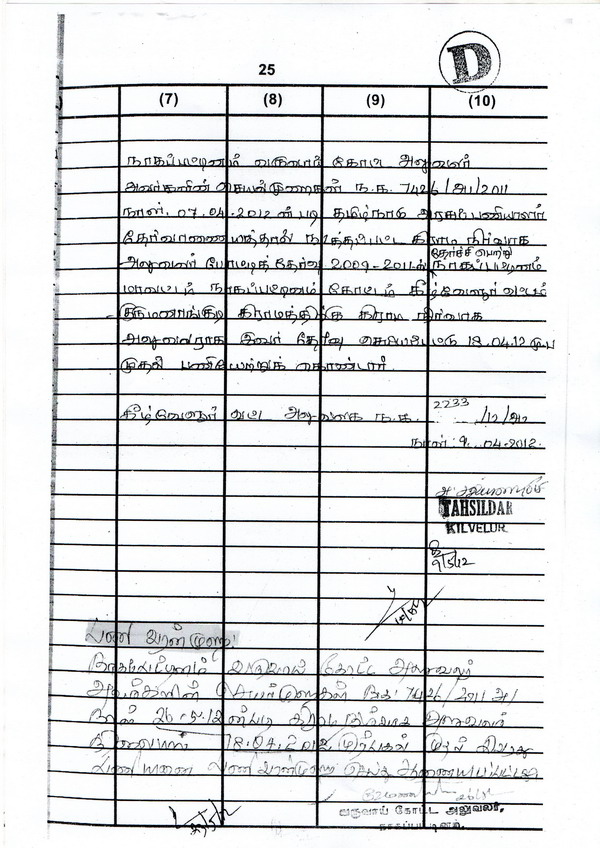 25
D
(7) (8) (9) (10)
நாகப்பட்டினம் வருவாய் கோட்ட அலுவலர்
அவர்களின் செயல்முறைகள் ந.க. 7426/அ1/2011
நாள். 07.04.2012 ன் படி தமிழ்நாடு அரசுப்பணியாளர்
தேர்வாணையத்தால் நடத்தப்பட்ட கிராம நிர்வாக
தேர்ச்சி பெற்று
அலுவலர் போட்டித் தேர்வு 2009-2011ல் நாகப்பட்டினம்
மாவட்டம் நாகப்பட்டினம் கோட்டம் கீழ்வேளூர் வட்டம்
கிராமத்திற்கு கிராம நிர்வாக
அலுவலராக இவர் தேர்வு செய்யப்பட்டு 18.04.12 மு.ப
முதல் பணியேற்றுக் கொண்டார்.
கீழ்வேளூர் வட்ட அலுவலக ந.க. 2233/12/அ2
நாள்: 9. -04-2012.
TAHSILDAR
KILVELUR
9/5/12
பணி வரன்முறை:
நாகப்பட்டினம் வருவாய் கோட்ட அலுவலர்
அவர்களின் செயல்முறைகள் ந.க. 7426/2011 அ1
நாள் 26.5.12 ன்படி கிராம நிர்வாக அலுவலர்
18.04.2012 முதல் இவரது
பணியினை பணி வரன்முறை செய்து ஆணையிடப்பட்டது
வருவாய் கோட்ட அலுவலர்,
நாகப்பட்டினம்.